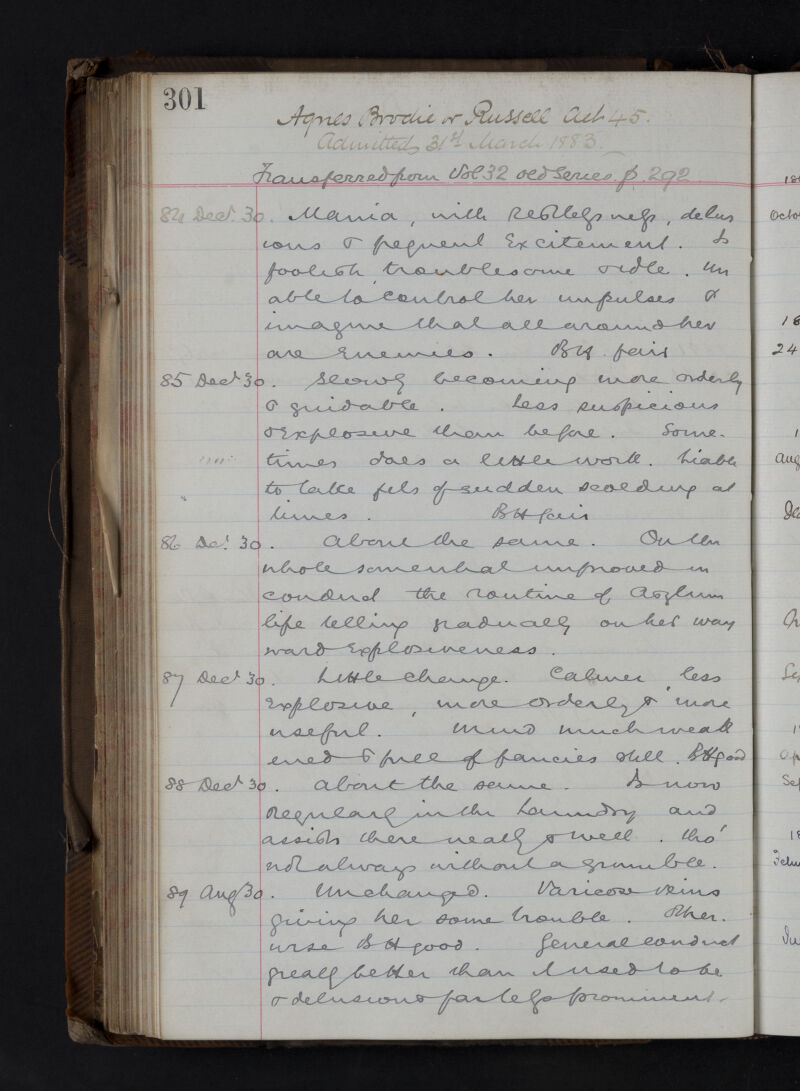 301
Agnes Brodie or Russell Aet 45.
Admitted 31st March 1883.
Transferred from Vol 32 old Series p. 292
84 Decr. 30. Mania, with restlessness, delus
ions & frequent Excitement. Is
foolish troublesome & idle. Un
able to control her impulses &
imagine that all around her
are Enemies. BH fair
85 Decr 30. Slowly becoming more orderly
& guidable. Less suspicious
& Explosive than before. Some-
times does a little work. Liable
to take fits of sudden scolding at
times. BH fair
86 Dec. 30. About the same. On the
whole somewhat improved in
conduct the routine of Asylum
life telling gradually on her way
ward Explosiveness.
87 Decr 30. Little change. Calmer, less
Explosive, more orderly & more
useful. Mind much weak
ened & full of fancies still. BH good
88 Decr 30. About the same. Is now
regularly in the Laundry and
assists there neatly & well. tho'
not always without a grumble.
89 Aug 30. Unchanged. Varicose veins
giving her some trouble. Other-
wise BH good. General conduct
greatly better than it used to be
& delusions far less prominent.
Octo
24
Aug
De
Se
Ap
Se